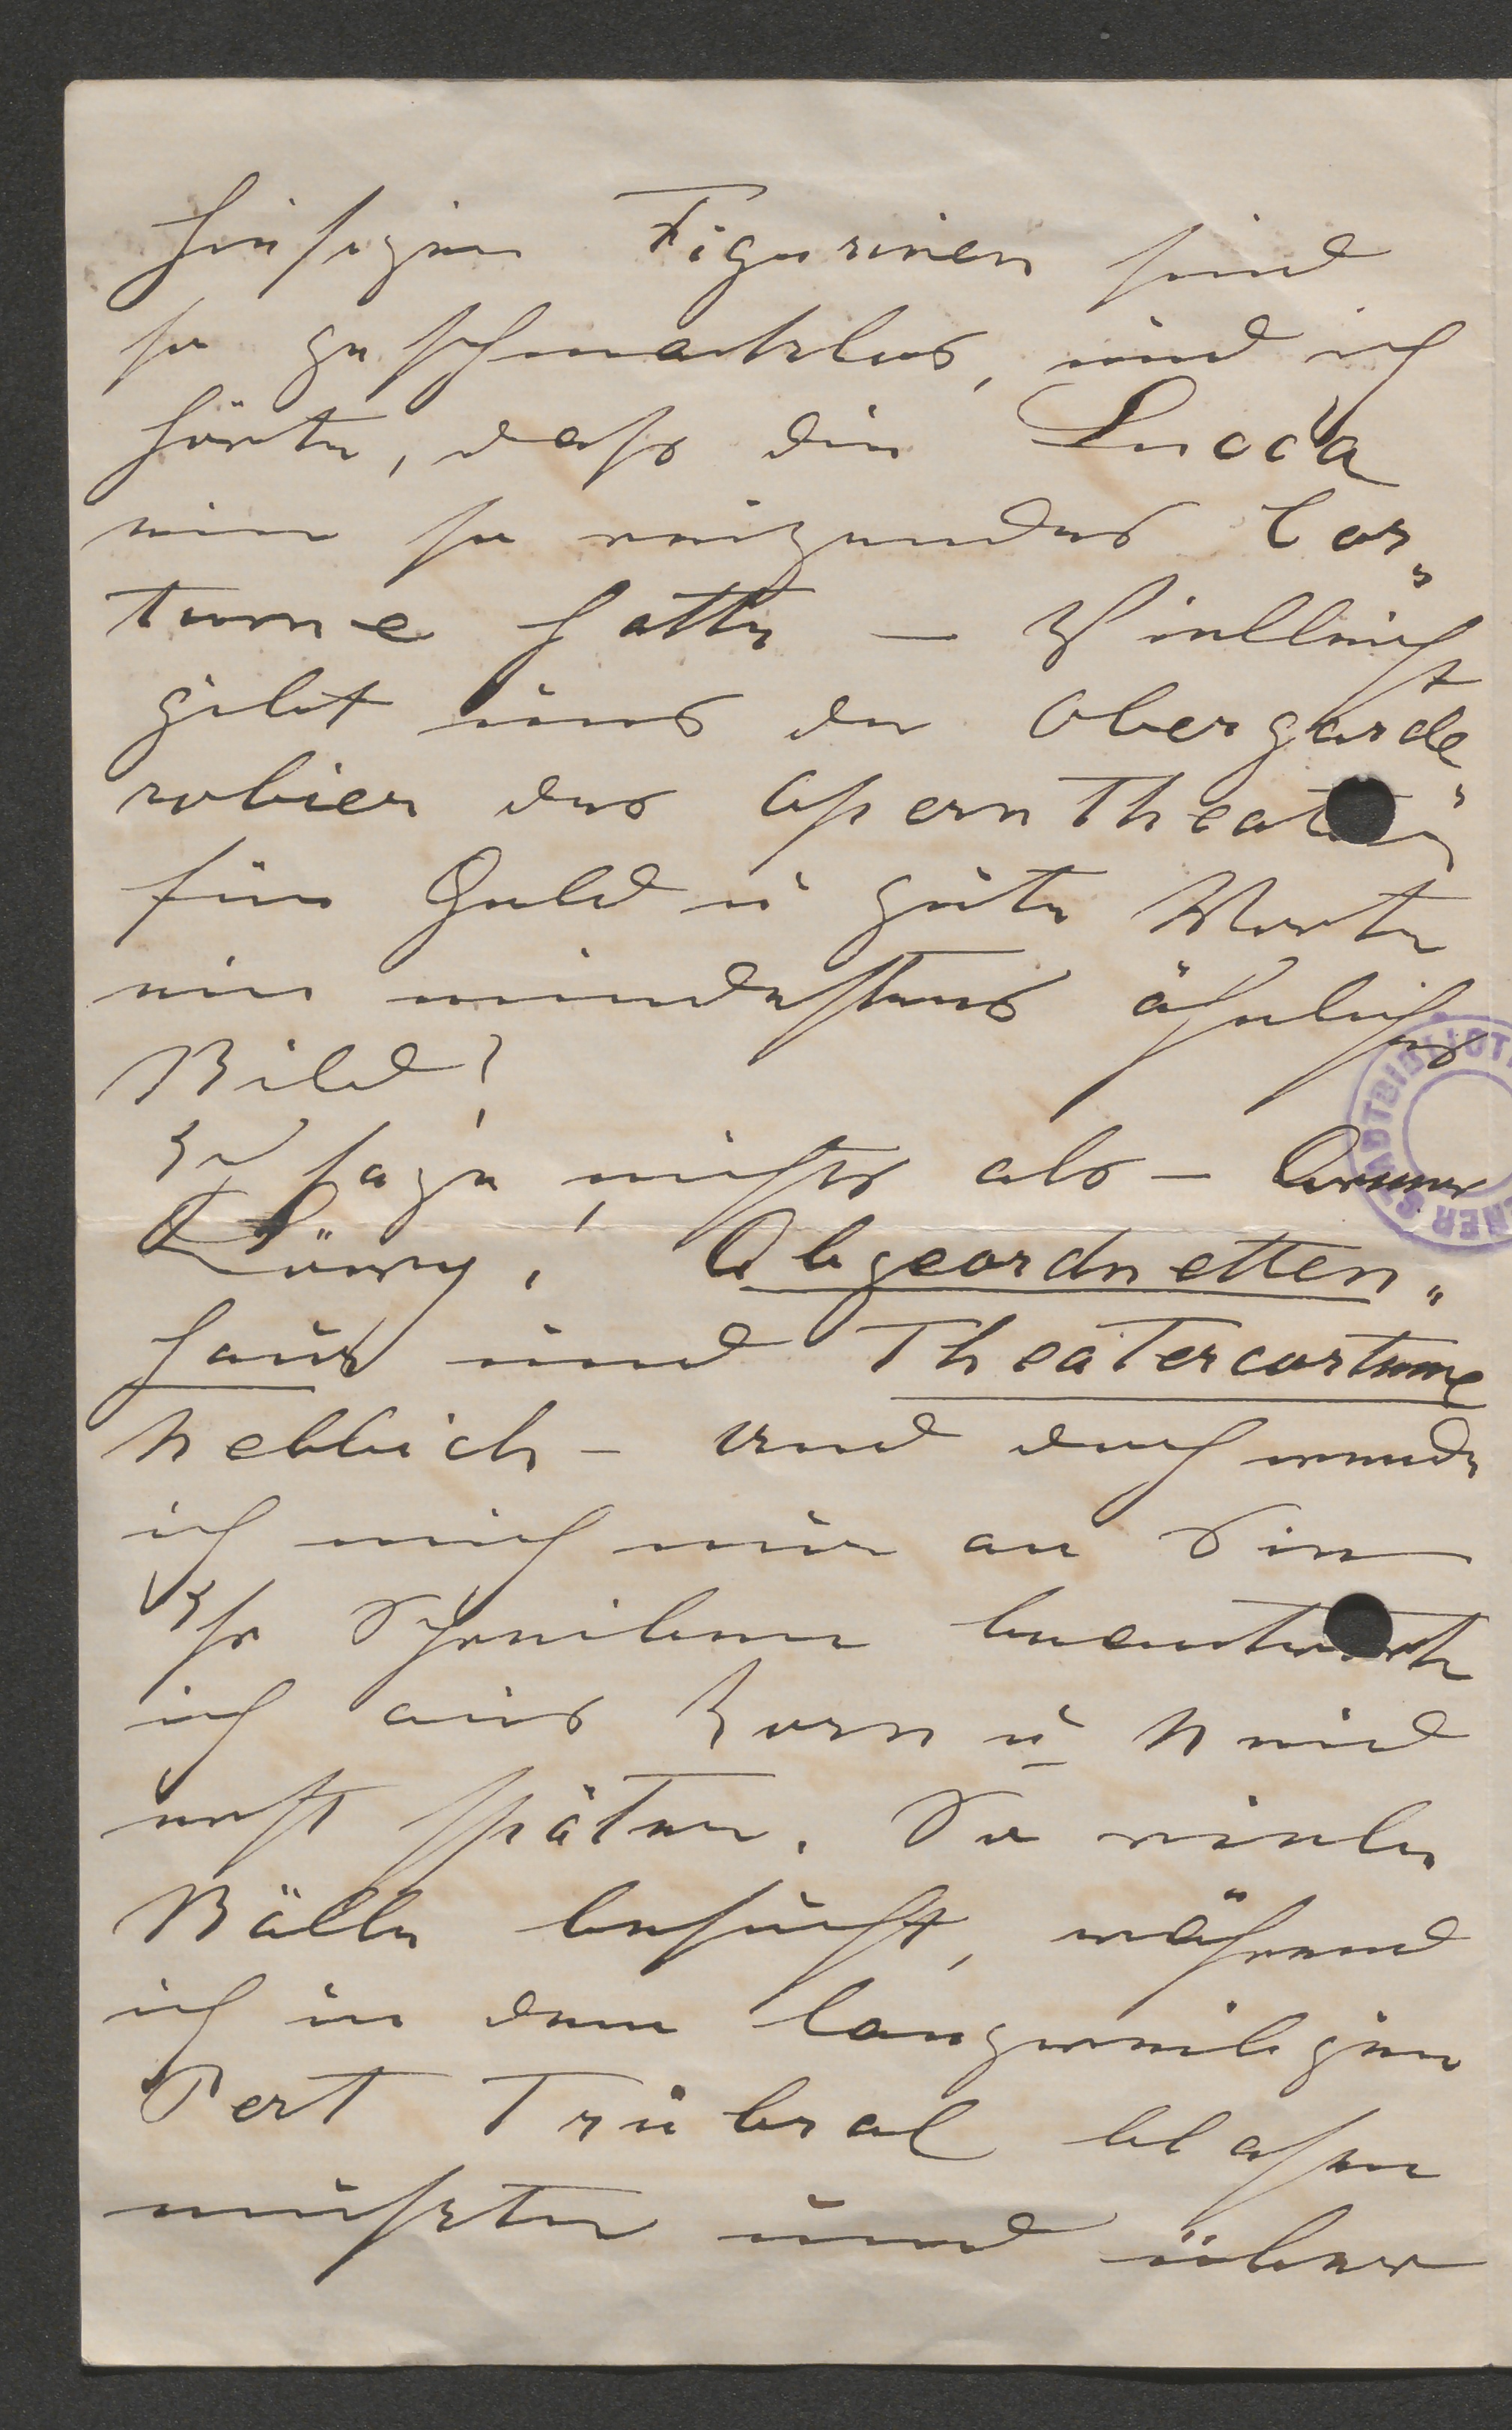 hiesigen Figurinen sind
so geschmacklos, und ich
hörte, daß die Lucca
ein so reizendes Cos„
tume hatte – Vielleicht
gibt uns der Obergarde„
robier des Operntheaters
für Geld u gute Worte
ein mindestens ähnliches
Bild?
Ich sage nichts als – Armer
Löwy, Abgeordnetten„
haus und Theatercostume
nebbich – Und doch wende
ich mich nur an Sie
Ihr Schreiben beantworte
ich aus Zorn u Neid
erst später. So viele
Bälle besucht, während
ich in dem langweiligen
Pest Trübsal blasen
mußte und über
STADTBIBLIOT